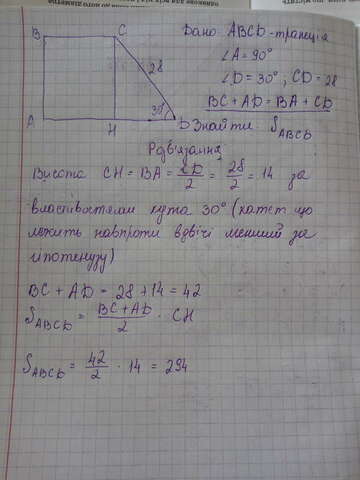 B C Дано ABCD - трапеція
∠A = 90°
28 ∠D = 30° ; CD = 28
30° BC + AD = BA + CD
A H D Знайти: S_ABCD
Розв'язання
Висота CH = BA = CD/2 = 28/2 = 14 за
властивостями кута 30° (катет що
лежить навпроти вдвічі менший за
гіпотенузу)
BC + AD = 28 + 14 = 42
S_ABCD = (BC + AD)/2 · CH
S_ABCD = 42/2 · 14 = 294